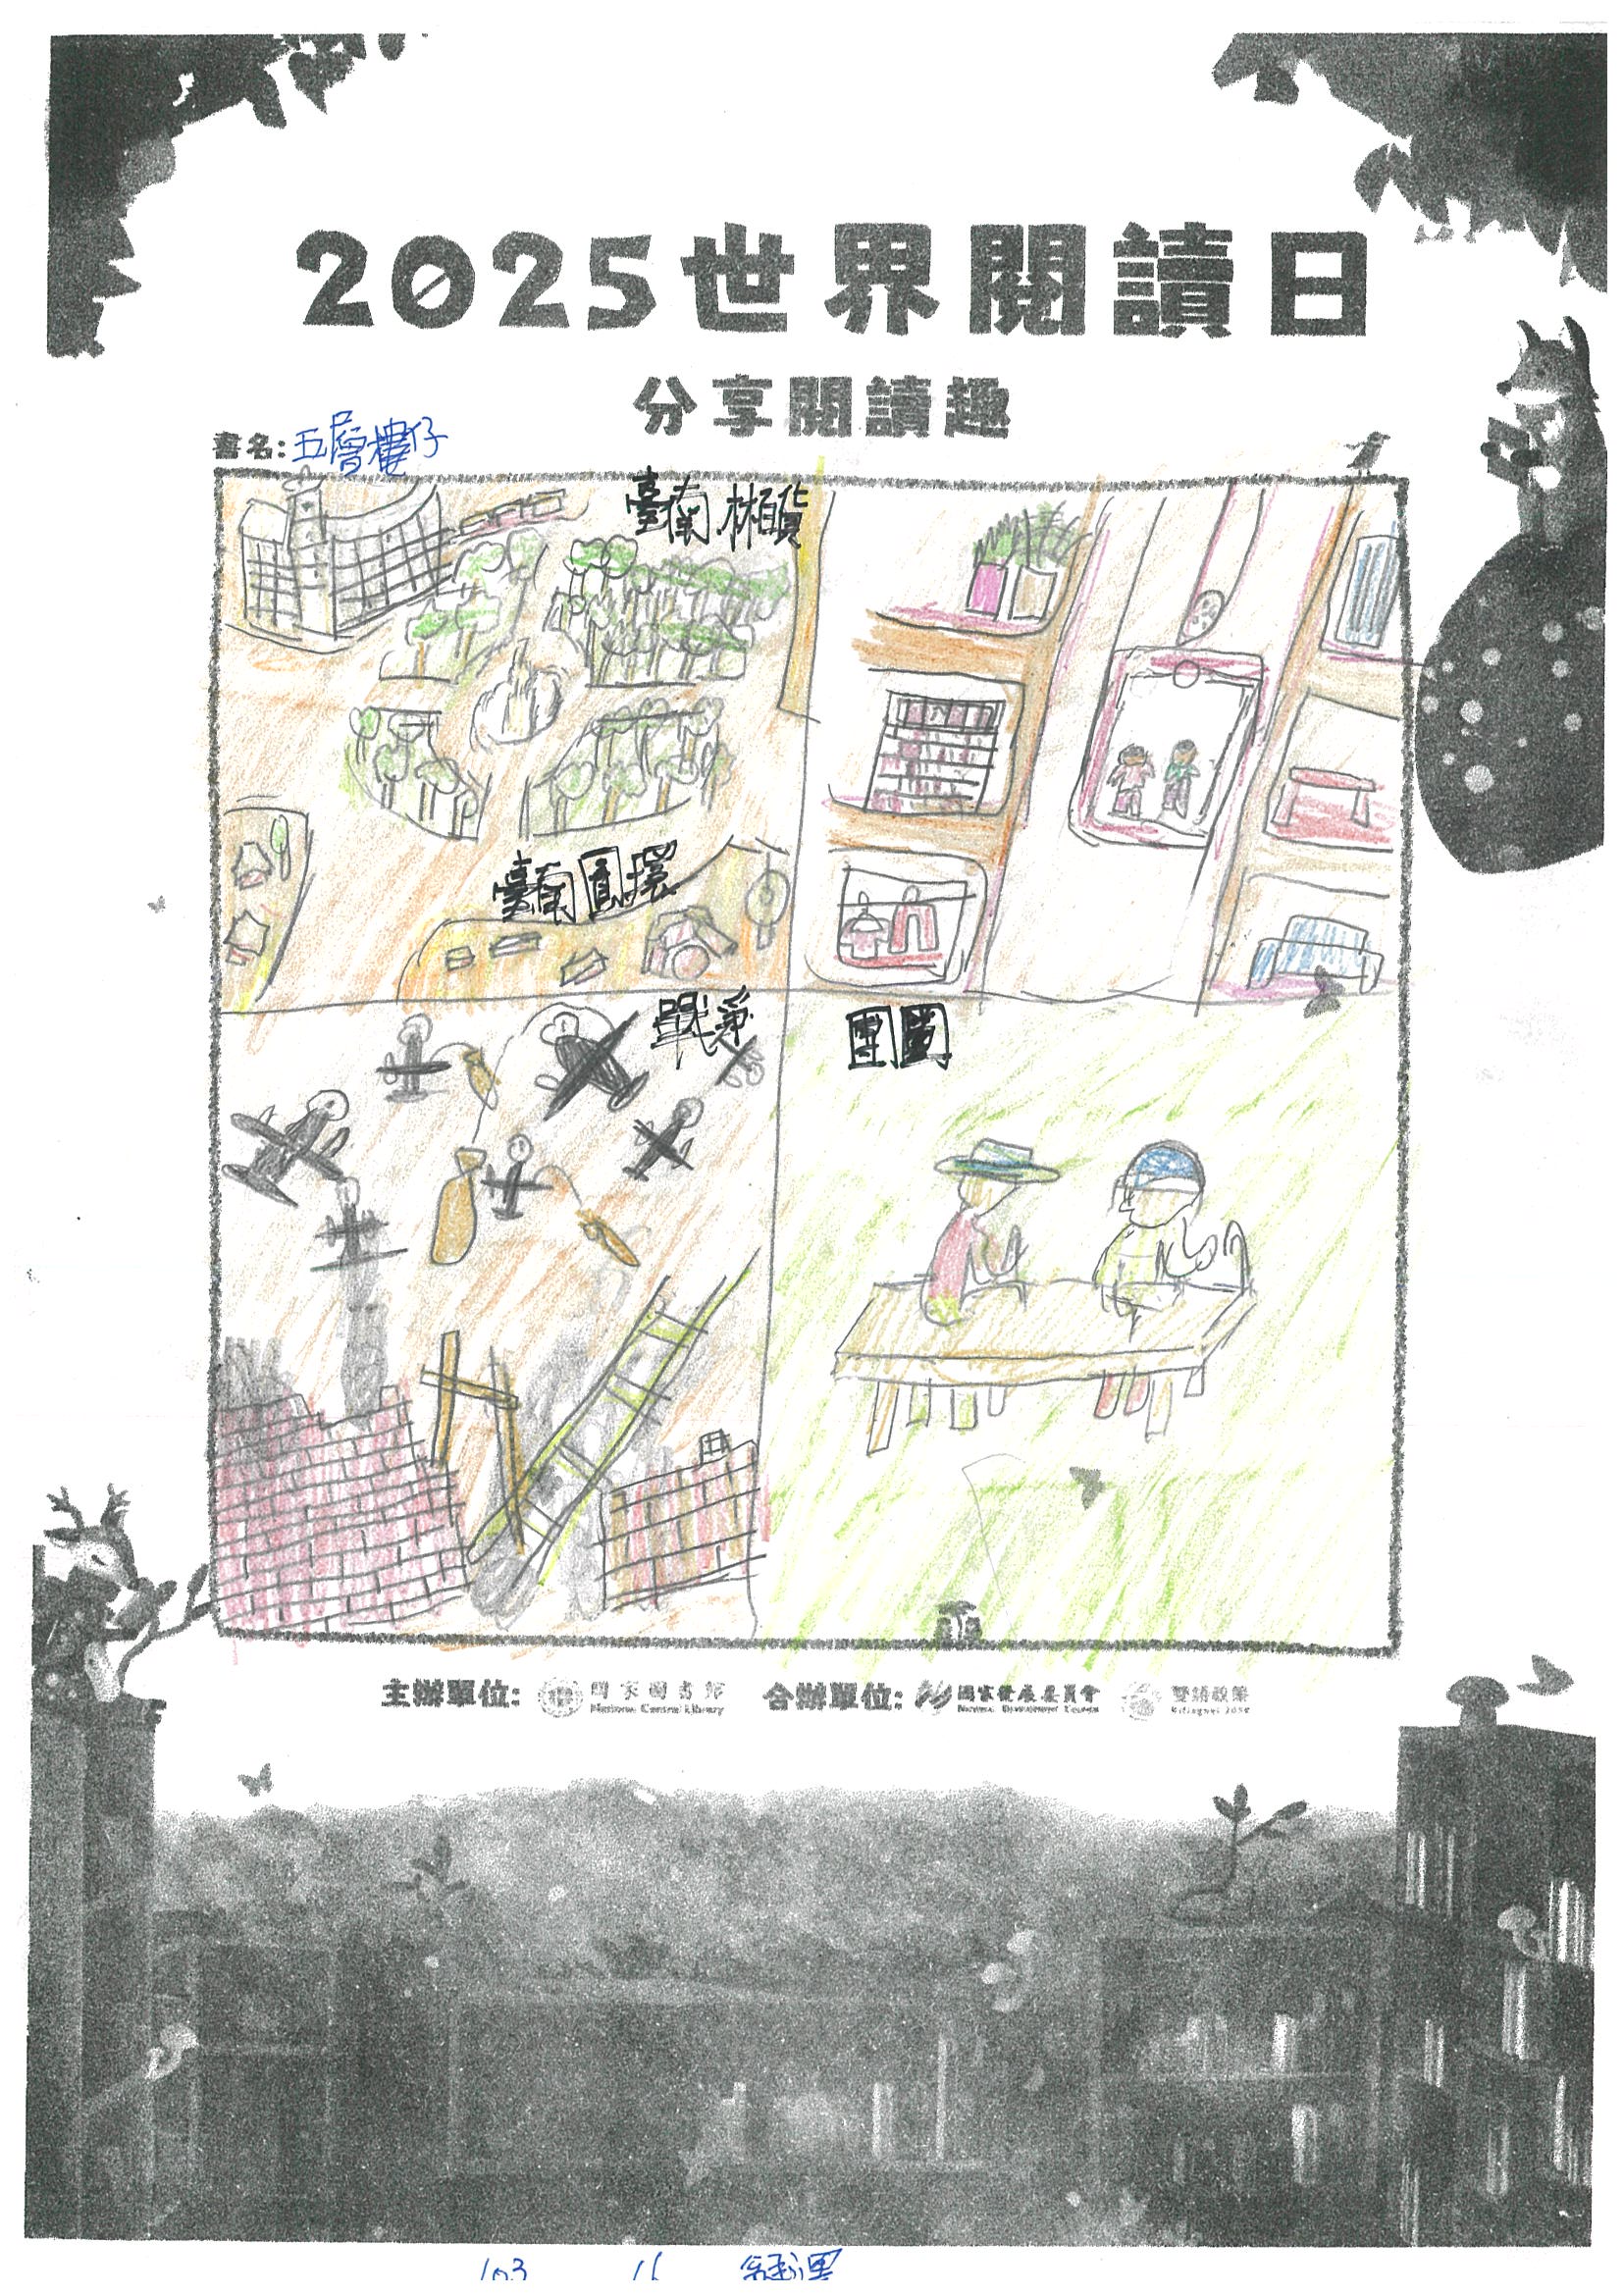 2025世界閱讀日
分享閱讀趣
書名:五層樓仔
臺南林百貨
臺南圓環
戰爭
團圓
主辦單位: 國家圖書館 National Central Library 合辦單位: 國家發展委員會 National Development Council 雙語政策 Bilingual 2030
103 16